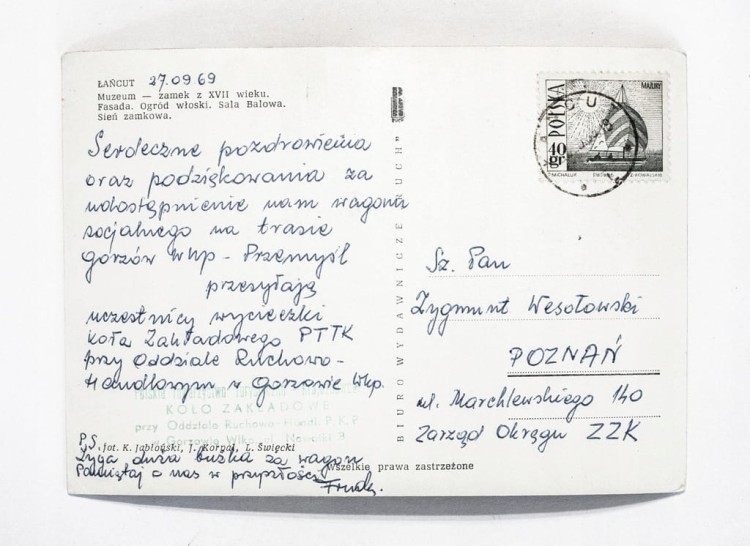 ŁAŃCUT 27.09 69
Muzeum — zamek z XVII wieku.
Fasada. Ogród włoski. Sala Balowa.
Sień zamkowa.
Serdeczne pozdrowienia
oraz podziękowania za
udostępnienie nam wagonu
socjalnego na trasie
Gorzów Wlkp - Przemyśl
przesyłają
uczestnicy wycieczki
Koła Zakładowego PTTK
przy Oddziale Ruchowo-
Handlowym w Gorzowie Wlkp.
KOŁO ZAKŁADOWE
przy Oddziale Ruchowo-Handl. P.K.P
w Gorzowie Wlkp.
fot. K. Jabłoński, J. Korpal, L. Święcki
P.S.
Zyga duża buźka za wagon
Pamiętaj o nas w przyszłości
BIURO WYDAWNICZE „RUCH"
Wszelkie prawa zastrzeżone
POLSKA
MAZURY
40 gr
T. MICHALUK
Z. KOWALSKI
Sz. Pan
Zygmunt Wesołowski
POZNAŃ
ul. Marchlewskiego 140
Zarząd Okręgu ZZK